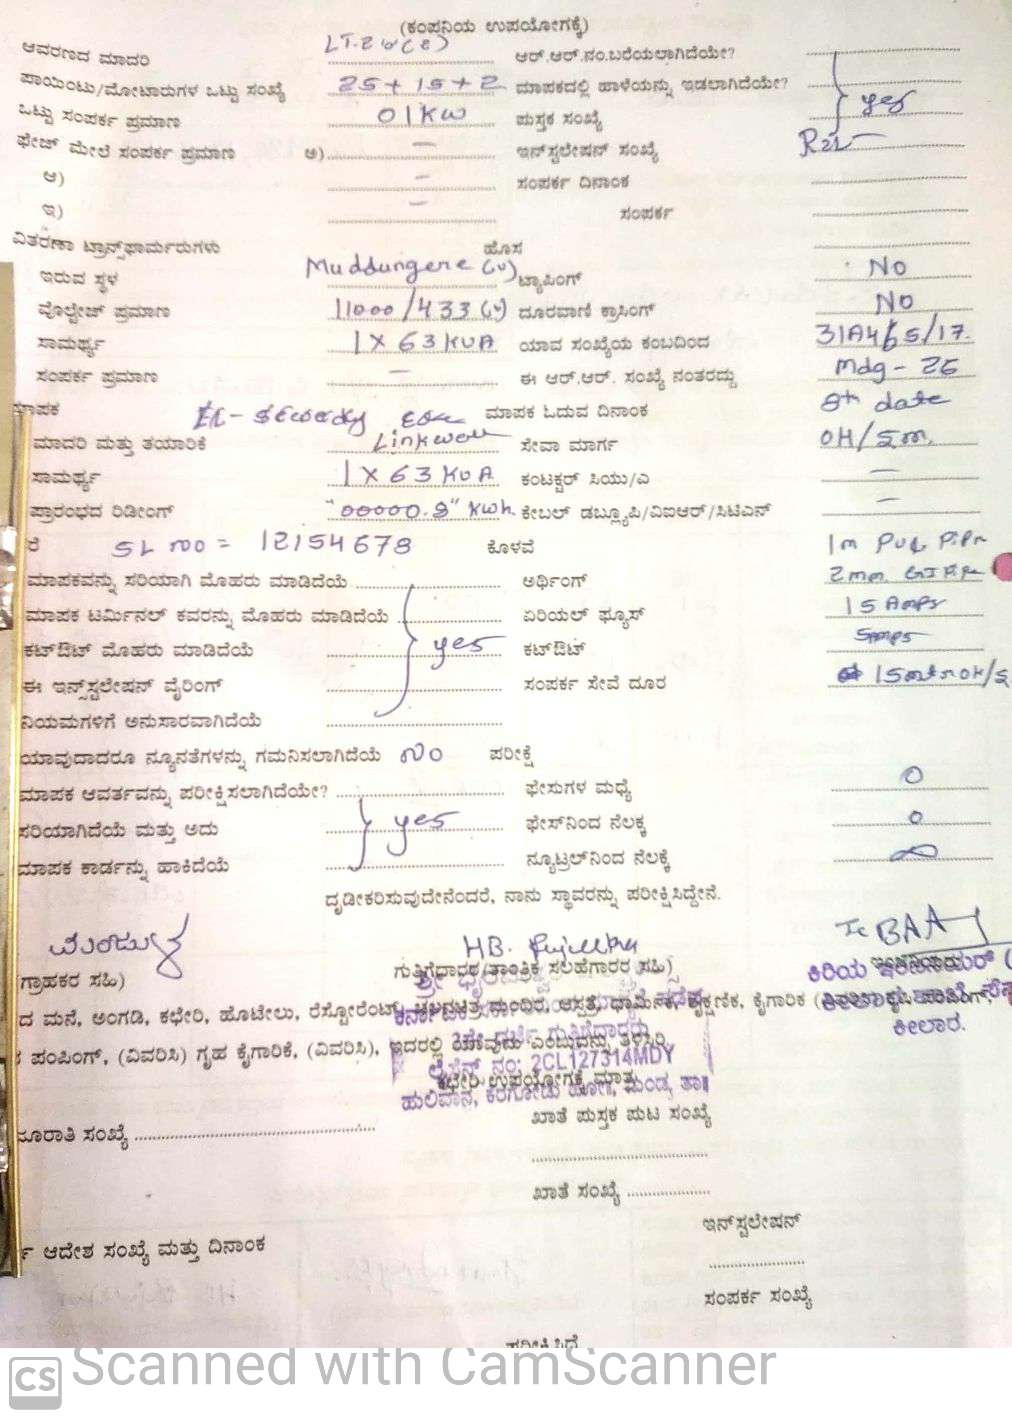 (ಕಂಪನಿಯ ಉಪಯೋಗಕ್ಕೆ)
ಆವರಣದ ಮಾದರಿ ಆರ್.ಆರ್.ನಂ.ಬರೆಯಲಾಗಿದೆಯೇ?
ಪಾಯಿಂಟು/ಮೋಟಾರುಗಳ ಒಟ್ಟು ಸಂಖ್ಯೆ 25+15+2 ಮಾಪಕದಲ್ಲಿ ಹಾಳೆಯನ್ನು ಇಡಲಾಗಿದೆಯೇ? yes
ಒಟ್ಟು ಸಂಪರ್ಕ ಪ್ರಮಾಣ 01KW ಪುಸ್ತಕ ಸಂಖ್ಯೆ
ಫೇಜ್ ಮೇಲೆ ಸಂಪರ್ಕ ಪ್ರಮಾಣ ಅ) – ಇನ್‌ಸ್ಟಲೇಷನ್ ಸಂಖ್ಯೆ
ಆ) – ಸಂಪರ್ಕ ದಿನಾಂಕ
ಇ) – ಸಂಪರ್ಕ
ವಿತರಣಾ ಟ್ರಾನ್ಸ್‌ಫಾರ್ಮರುಗಳು ಹೊಸ
ಇರುವ ಸ್ಥಳ Muddungere (v) ಟ್ಯಾಪಿಂಗ್ No
ವೋಲ್ಟೇಜ್ ಪ್ರಮಾಣ 11000/433 (v) ದೂರವಾಣಿ ಕ್ರಾಸಿಂಗ್ No
ಸಾಮರ್ಥ್ಯ 1 X 63 KVA ಯಾವ ಸಂಖ್ಯೆಯ ಕಂಬದಿಂದ
ಸಂಪರ್ಕ ಪ್ರಮಾಣ – ಈ ಆರ್.ಆರ್. ಸಂಖ್ಯೆ ನಂತರದ್ದು Mdg - 26
ಮಾಪಕ ಮಾಪಕ ಓದುವ ದಿನಾಂಕ 8th date
ಮಾದರಿ ಮತ್ತು ತಯಾರಿಕೆ Linkwell ಸೇವಾ ಮಾರ್ಗ OH/S.m.
ಸಾಮರ್ಥ್ಯ 1 X 63 KVA ಕಂಟಕ್ಟರ್ ಸಿಯು/ಎ –
ಪ್ರಾರಂಭದ ರಿಡೀಂಗ್ "00000.8" Kwh. ಕೇಬಲ್ ಡಬ್ಲ್ಯೂಪಿ/ವಿಐಆರ್/ಸಿಟಿಎನ್ –
ರೆ SL no = 12154678 ಕೊಳವೆ 1m PVC Pipe
ಮಾಪಕವನ್ನು ಸರಿಯಾಗಿ ಮೊಹರು ಮಾಡಿದೆಯೆ ಅರ್ಥಿಂಗ್ 2mm GI Pipe
ಮಾಪಕ ಟರ್ಮಿನಲ್ ಕವರನ್ನು ಮೊಹರು ಮಾಡಿದೆಯೆ ಏರಿಯಲ್ ಫ್ಯೂಸ್ 15 Amps
ಕಟ್‌ಔಟ್ ಮೊಹರು ಮಾಡಿದೆಯೆ yes ಕಟ್‌ಔಟ್
ಈ ಇನ್ಸ್‌ಸ್ಟಲೇಷನ್ ವೈರಿಂಗ್ ಸಂಪರ್ಕ ಸೇವೆ ದೂರ
ನಿಯಮಗಳಿಗೆ ಅನುಸಾರವಾಗಿದೆಯೆ
ಯಾವುದಾದರೂ ನ್ಯೂನತೆಗಳನ್ನು ಗಮನಿಸಲಾಗಿದೆಯೆ no ಪರೀಕ್ಷೆ
ಮಾಪಕ ಆವರ್ತವನ್ನು ಪರೀಕ್ಷಿಸಲಾಗಿದೆಯೇ? ಫೇಸುಗಳ ಮಧ್ಯೆ 0
ಸರಿಯಾಗಿದೆಯೆ ಮತ್ತು ಅದು yes ಫೇಸ್‌ನಿಂದ ನೆಲಕ್ಕೆ 0
ಮಾಪಕ ಕಾರ್ಡನ್ನು ಹಾಕಿದೆಯೆ ನ್ಯೂಟ್ರಲ್‌ನಿಂದ ನೆಲಕ್ಕೆ ∞
ದೃಡೀಕರಿಸುವುದೇನೆಂದರೆ, ನಾನು ಸ್ಥಾವರನ್ನು ಪರೀಕ್ಷಿಸಿದ್ದೇನೆ.
ಗ್ರಾಹಕರ ಸಹಿ) ಗುತ್ತಿಗೆದಾರರ (ತಾಂತ್ರಿಕ ಸಲಹೆಗಾರರ ಸಹಿ) ಕಿರಿಯ
ದ ಮನೆ, ಅಂಗಡಿ, ಕಛೇರಿ, ಹೊಟೇಲು, ರೆಸ್ಟೋರೆಂಟ್, ಚಲನಚಿತ್ರ ಮಂದಿರ, ಆಸ್ಪತ್ರೆ, ಧಾರ್ಮಿಕ, ಶೈಕ್ಷಣಿಕ, ಕೈಗಾರಿಕ
ಕೀಲಾರ.
ಪಂಪಿಂಗ್, (ವಿವರಿಸಿ) ಗೃಹ ಕೈಗಾರಿಕೆ, (ವಿವರಿಸಿ), ಇದರಲ್ಲಿ ಯಾವುದು ಎಂಬುದನ್ನು ತಿಳಿಸಿರಿ
ಲೈಸೆನ್ಸ್ ನಂ: 2CL127314MDY
ಕಛೇರಿ ಉಪಯೋಗಕ್ಕೆ ಮಾತ್ರ
ಹುಲಿವಾನ, ಕೆರಗೋಡು ಹೋಗಿ, ಮಂಡ್ಯ ತಾ॥
ಖಾತೆ ಪುಸ್ತಕ ಪುಟ ಸಂಖ್ಯೆ
ಜೂರಾತಿ ಸಂಖ್ಯೆ
ಖಾತೆ ಸಂಖ್ಯೆ
ಇನ್‌ಸ್ಟಲೇಷನ್
ಆದೇಶ ಸಂಖ್ಯೆ ಮತ್ತು ದಿನಾಂಕ
ಸಂಪರ್ಕ ಸಂಖ್ಯೆ
CS Scanned with CamScanner